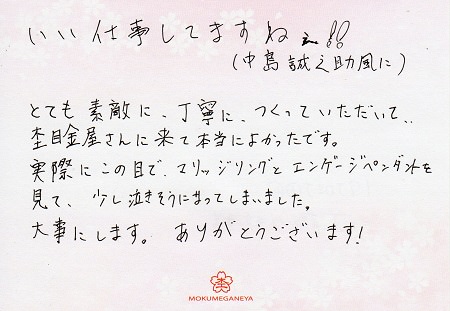 いい仕事してますねぇ!!
(中島誠之助風に)
とても素敵に、丁寧に、つくっていただいて、
杢目金屋さんに来て本当によかったです。
実際にこの目で、マリッジリングとエンゲージペンダントを
見て、少し泣きそうになってしまいました。
大事にします。ありがとうございます!
MOKUMEGANEYA